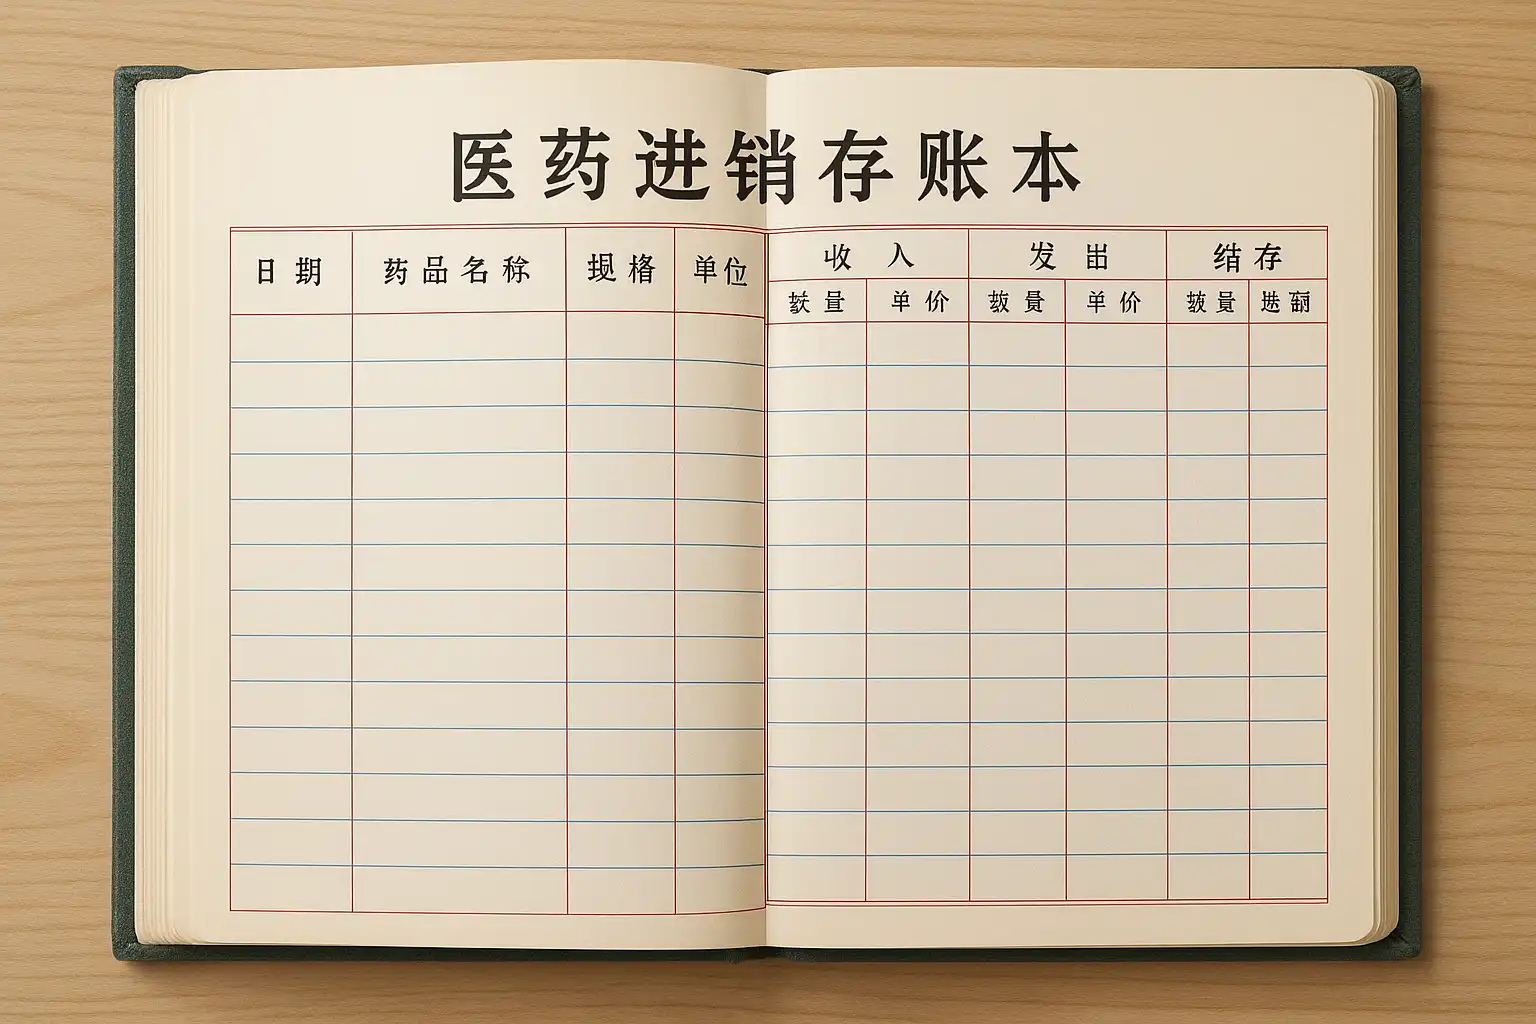 医药进销存账本
日期 药品名称 规格 单位 收入 发出 结存
数量 单价 数量 单价 数量